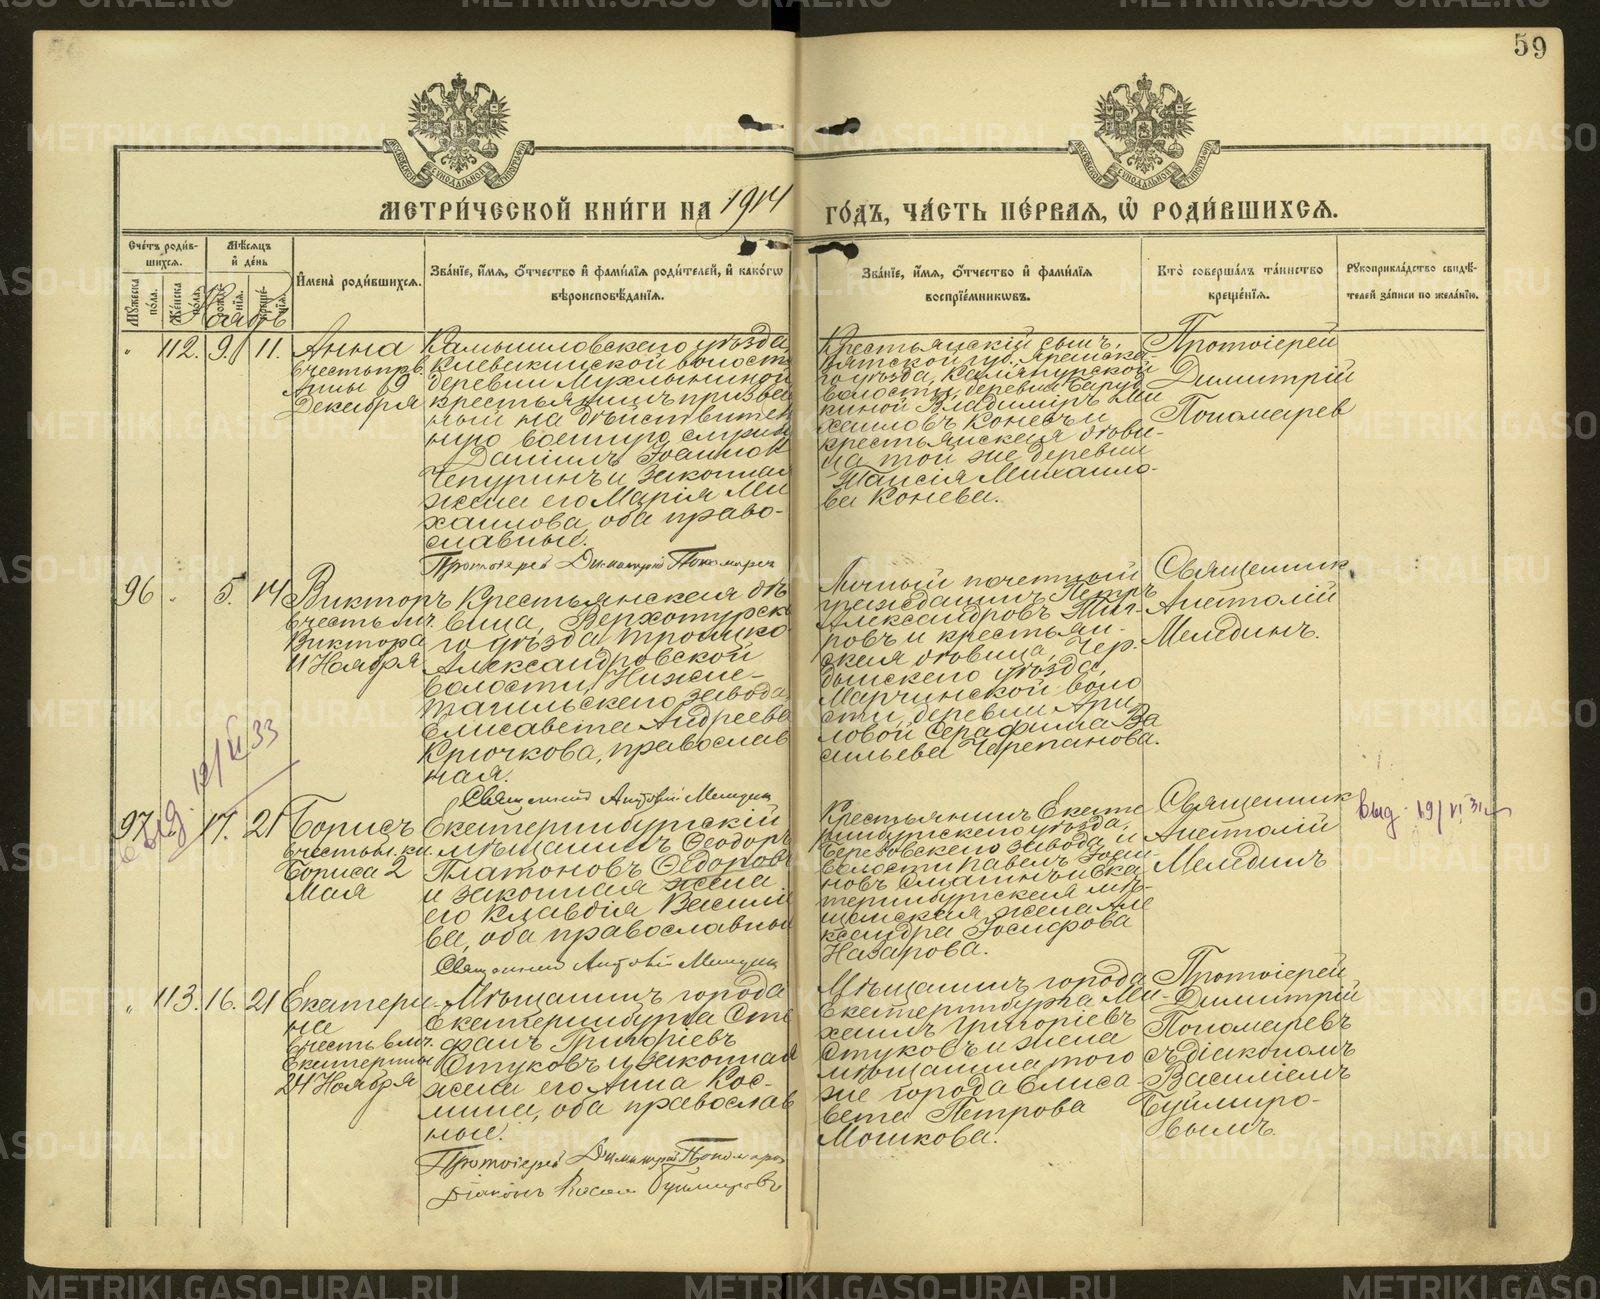 59
МЕТРИ́ЧЕСКОЙ КНИ́ГИ НА 1914 ГО́ДЪ, ЧА́СТЬ ПЕ́РВАЯ, Ѡ҆ РОДИ́ВШИХСЯ.
Сче́тъ роди́в-
шихся.
Му́жеска по́ла.
Же́нска по́ла.
Мѣ́сяцъ
и҆ де́нь
рожде́нїя.
креще́нїя.
И҆мена̀ роди́вшихся.
Зва́нїе, и҆́мя, ѻ҆́тчество и҆ фами́лїя роди́телей, и҆ како́гѡ
вѣроисповѣ́данїя.
Зва́нїе, и҆́мя, ѻ҆́тчество и҆ фами́лїя
воспрїе́мниковъ.
Кто̀ соверша́лъ та́инство
креще́нїя.
Рꙋкоприкла́дство свидѣ́-
телей за́писи по жела́нїю.
Ноябрь
" 112. 9. 11.
Анна
в честь прв.
Анны 9
Декабря
Камышловскаго уѣзда,
Клевакинской волости
деревни Мухлыниной
крестьянинъ призван
ный на дѣйствитель
ную военную службу
Данiилъ Iоаннов
Чепуринъ и законная
жена его Марiя Ми
хаилова, оба право-
славные.
Протоiерей Димитрiй Пономарев
Крестьянскiй сынъ,
Вятской губ. Яранска-
го уѣзда,
волости, деревни
Владимiръ Ми
хаиловъ Коневъ и
крестьянская дѣви-
ца той же деревни
Таисiя Михаило-
ва Конева.
Протоiерей
Димитрiй
Пономарев
96 " 5. 14
Викторъ
в честь мч.
Виктора
11 Ноября
Крестьянская дѣ
вица, Верхотурска
го уѣзда, Троицко-
Александровской
волости, Нижне-
тагильскаго завода,
Елисавета Андреева
Крючкова, православ
ная.
Священникъ Анатолiй Меледин
Личный почетный
гражданинъ Петръ
Александровъ
ровъ и крестьян-
ская дѣвица, Чер-
дынскаго уѣзда,
волo
сти, деревни
ловой Серафима Ва
сильева Черепанова.
Священник
Анатолiй
Мелединъ.
выд. 19/VI 33
97 " 17. 21
Борисъ
в честь бл. кн.
Бориса 2
Мая
Екатеринбургскiй
мѣщанинъ Ѳеодоръ
Платоновъ Ѳедоров
и законная жена
его Клавдiя Василье
ва, оба православные
Священникъ Анатолiй Меледин
Крестьянинъ Екате
ринбургскаго уѣзда,
Березовскаго завода и
волости Павелъ Iоан
новъ и Ека
теринбургская мѣ-
щанская жена Але
ксандра Iосифова
Назарова.
Священник
Анатолiй
Мелединъ
выд. 19/VI 31
" 113. 16. 21
Екатери-
на
в честь влмч.
Екатерины
24 Ноября
Мѣщанинъ города
Екатеринбурга Сте
фанъ Григорiевъ
Стуковъ и законная
жена его Анна Кос-
мина, оба православ
ные.
Протоiерей Димитрiй Пономарев
Дiаконъ Василiй Буймировъ
Мѣщанинъ города
Екатеринбурга Ми-
хаилъ Григорiевъ
Стуковъ и жена
мѣщанина того
же города Елиса
вета Петрова
Мошкова.
Протоiерей
Димитрiй
Пономаревъ
съ дiакономъ
Василiемъ
Буймиро-
вымъ.
METRIKI.GASO-URAL.RU